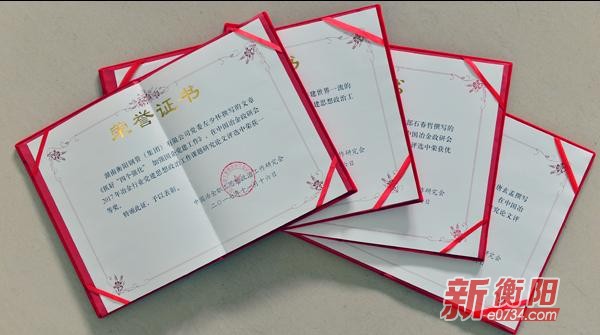 荣誉证书
湖南衡阳钢管（集团）有限公司党委左少怀撰写的文章
《抓好"四个强化" 加强国企党建工作》，在中国冶金政研会
2017年冶金行业党建思想政治工作课题研究论文评选中荣获一
等奖。
特颁此证，予以表彰。
中国冶金职工思想政治工作研究会
二〇一七年十二月十六日
书
建世界一流的
建思想政治工
研究会
六日
部石春哲撰写的
中国冶金政研会
文评选中荣获优
作研究会
撰写
在中国冶
究论文评
究会
新衡阳
e0734.com